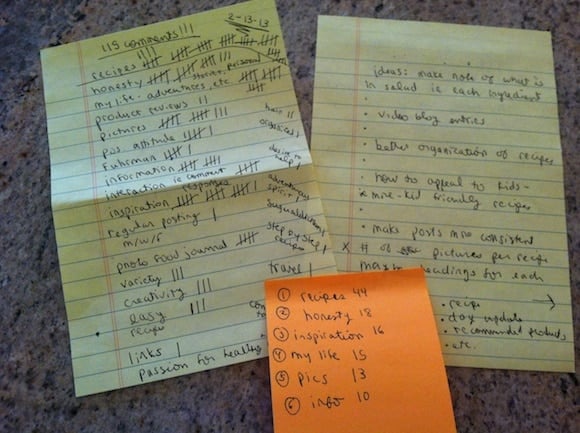 2-13-13
115 comments!!!
recipes
honesty
stories, personal
my life - adventures, etc.
product reviews ||
pictures
pos attitude
Fuhrman
information
interaction ie comment
responses
inspiration
regular posting |
m/w/f
photo food journal
variety |||
creativity |||
easy |||
recipes
links |
passion for healthy
hair ||
organized |
desire to
help |
adventurous
spirit |
sugar addiction |
step by step |
recipes
travel |
ideas: make note of what is
in salad ie each ingredient
• video blog entries
• better organization of recipes
• how to appeal to kids-
more kid friendly recipes
• make posts more consistent
x # of pictures per recipe
headings for each
• recipe
• day update
• recommended products
• etc.
① recipes 44
② honesty 18
③ inspiration 16
④ my life 15
⑤ pics 13
⑥ info 10